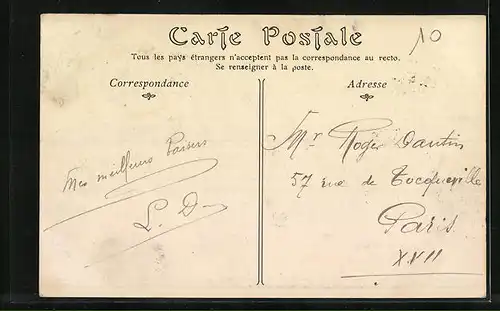 10
Carte Postale
Tous les pays étrangers n'acceptent pas la correspondance au recto.
Se renseigner à la poste.
Correspondance
Adresse
Mes meilleurs Baisers
L. D
Mr Roger Dantin
57 rue de Tocqueville
Paris
XVII